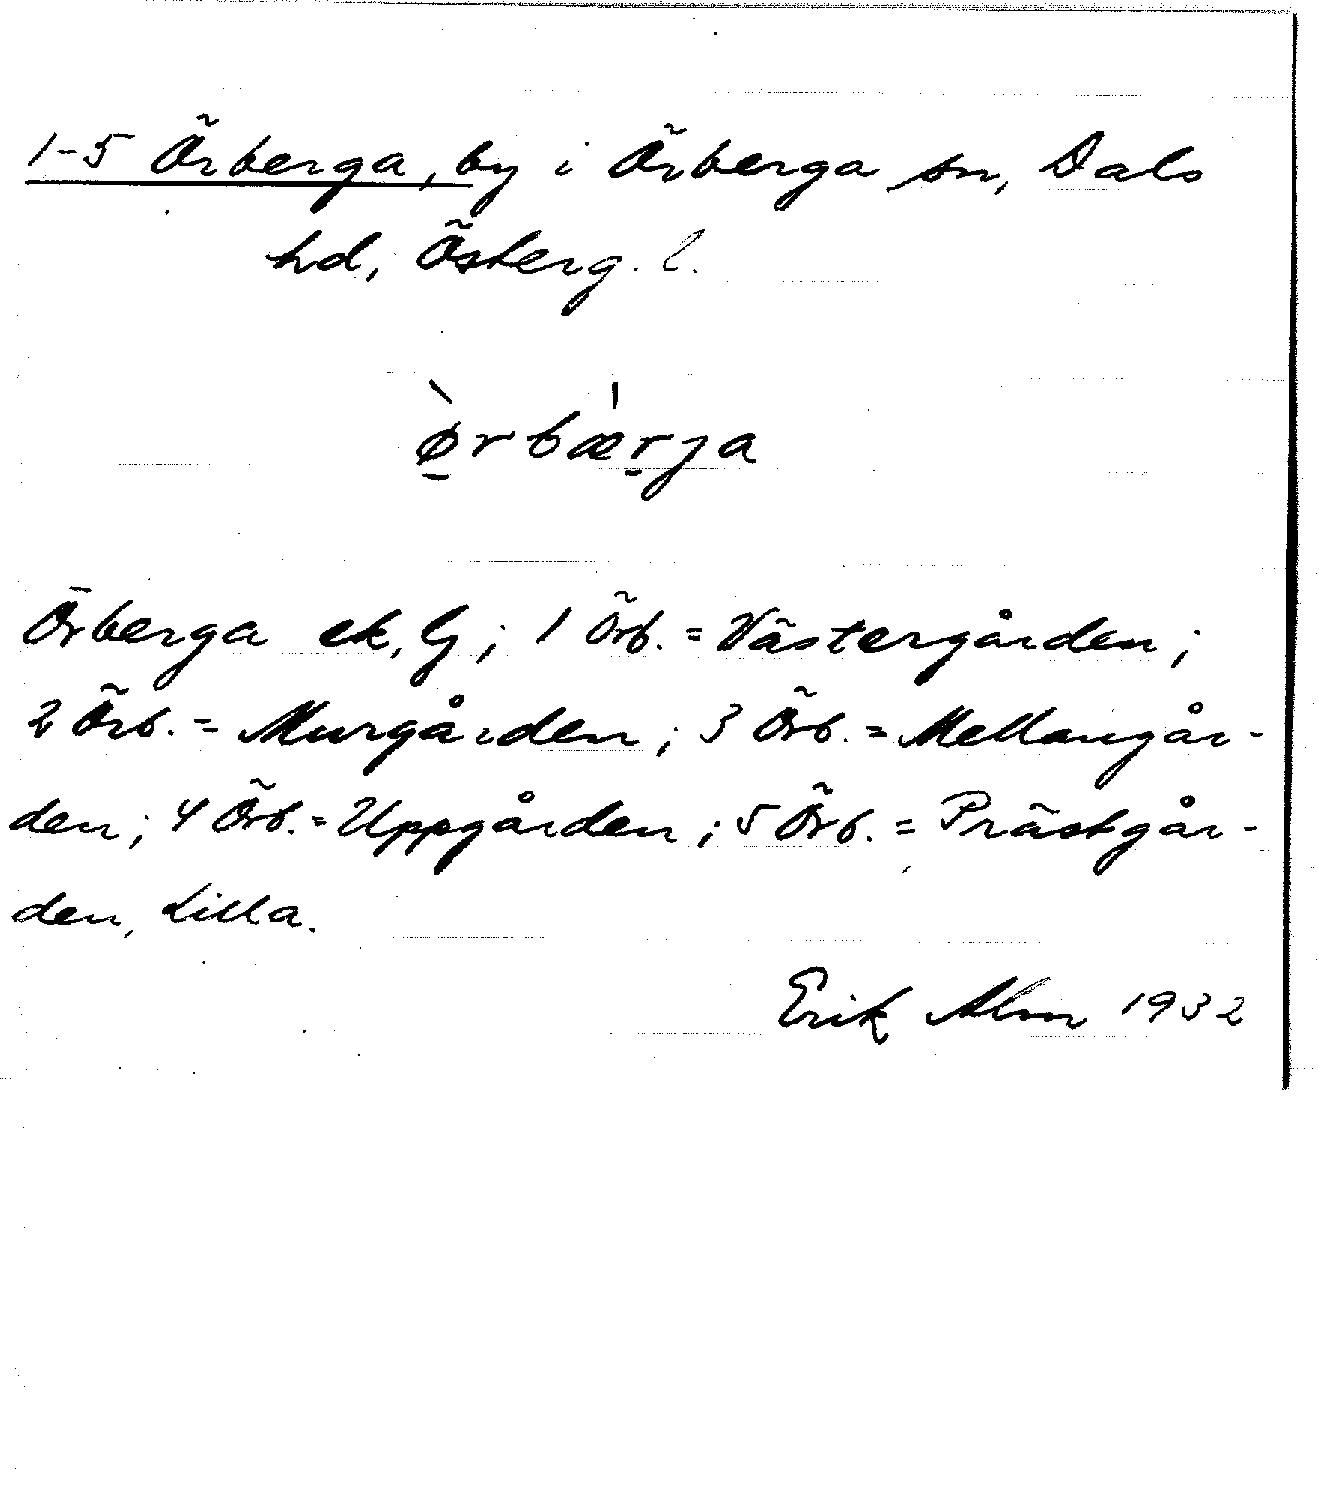 1-5 Örberga, by i Örberga sn, Dals
hd, Österg. l.
ø̱̀rbæ̍ṟja
Örberga ek, G; 1 Örb. = Västergården;
2 Örb. = Murgården; 3 Örb. = Mellangår-
den; 4 Örb. = Uppgården; 5 Örb. = Prästgår-
den, Lilla.
Erik Alm 1932